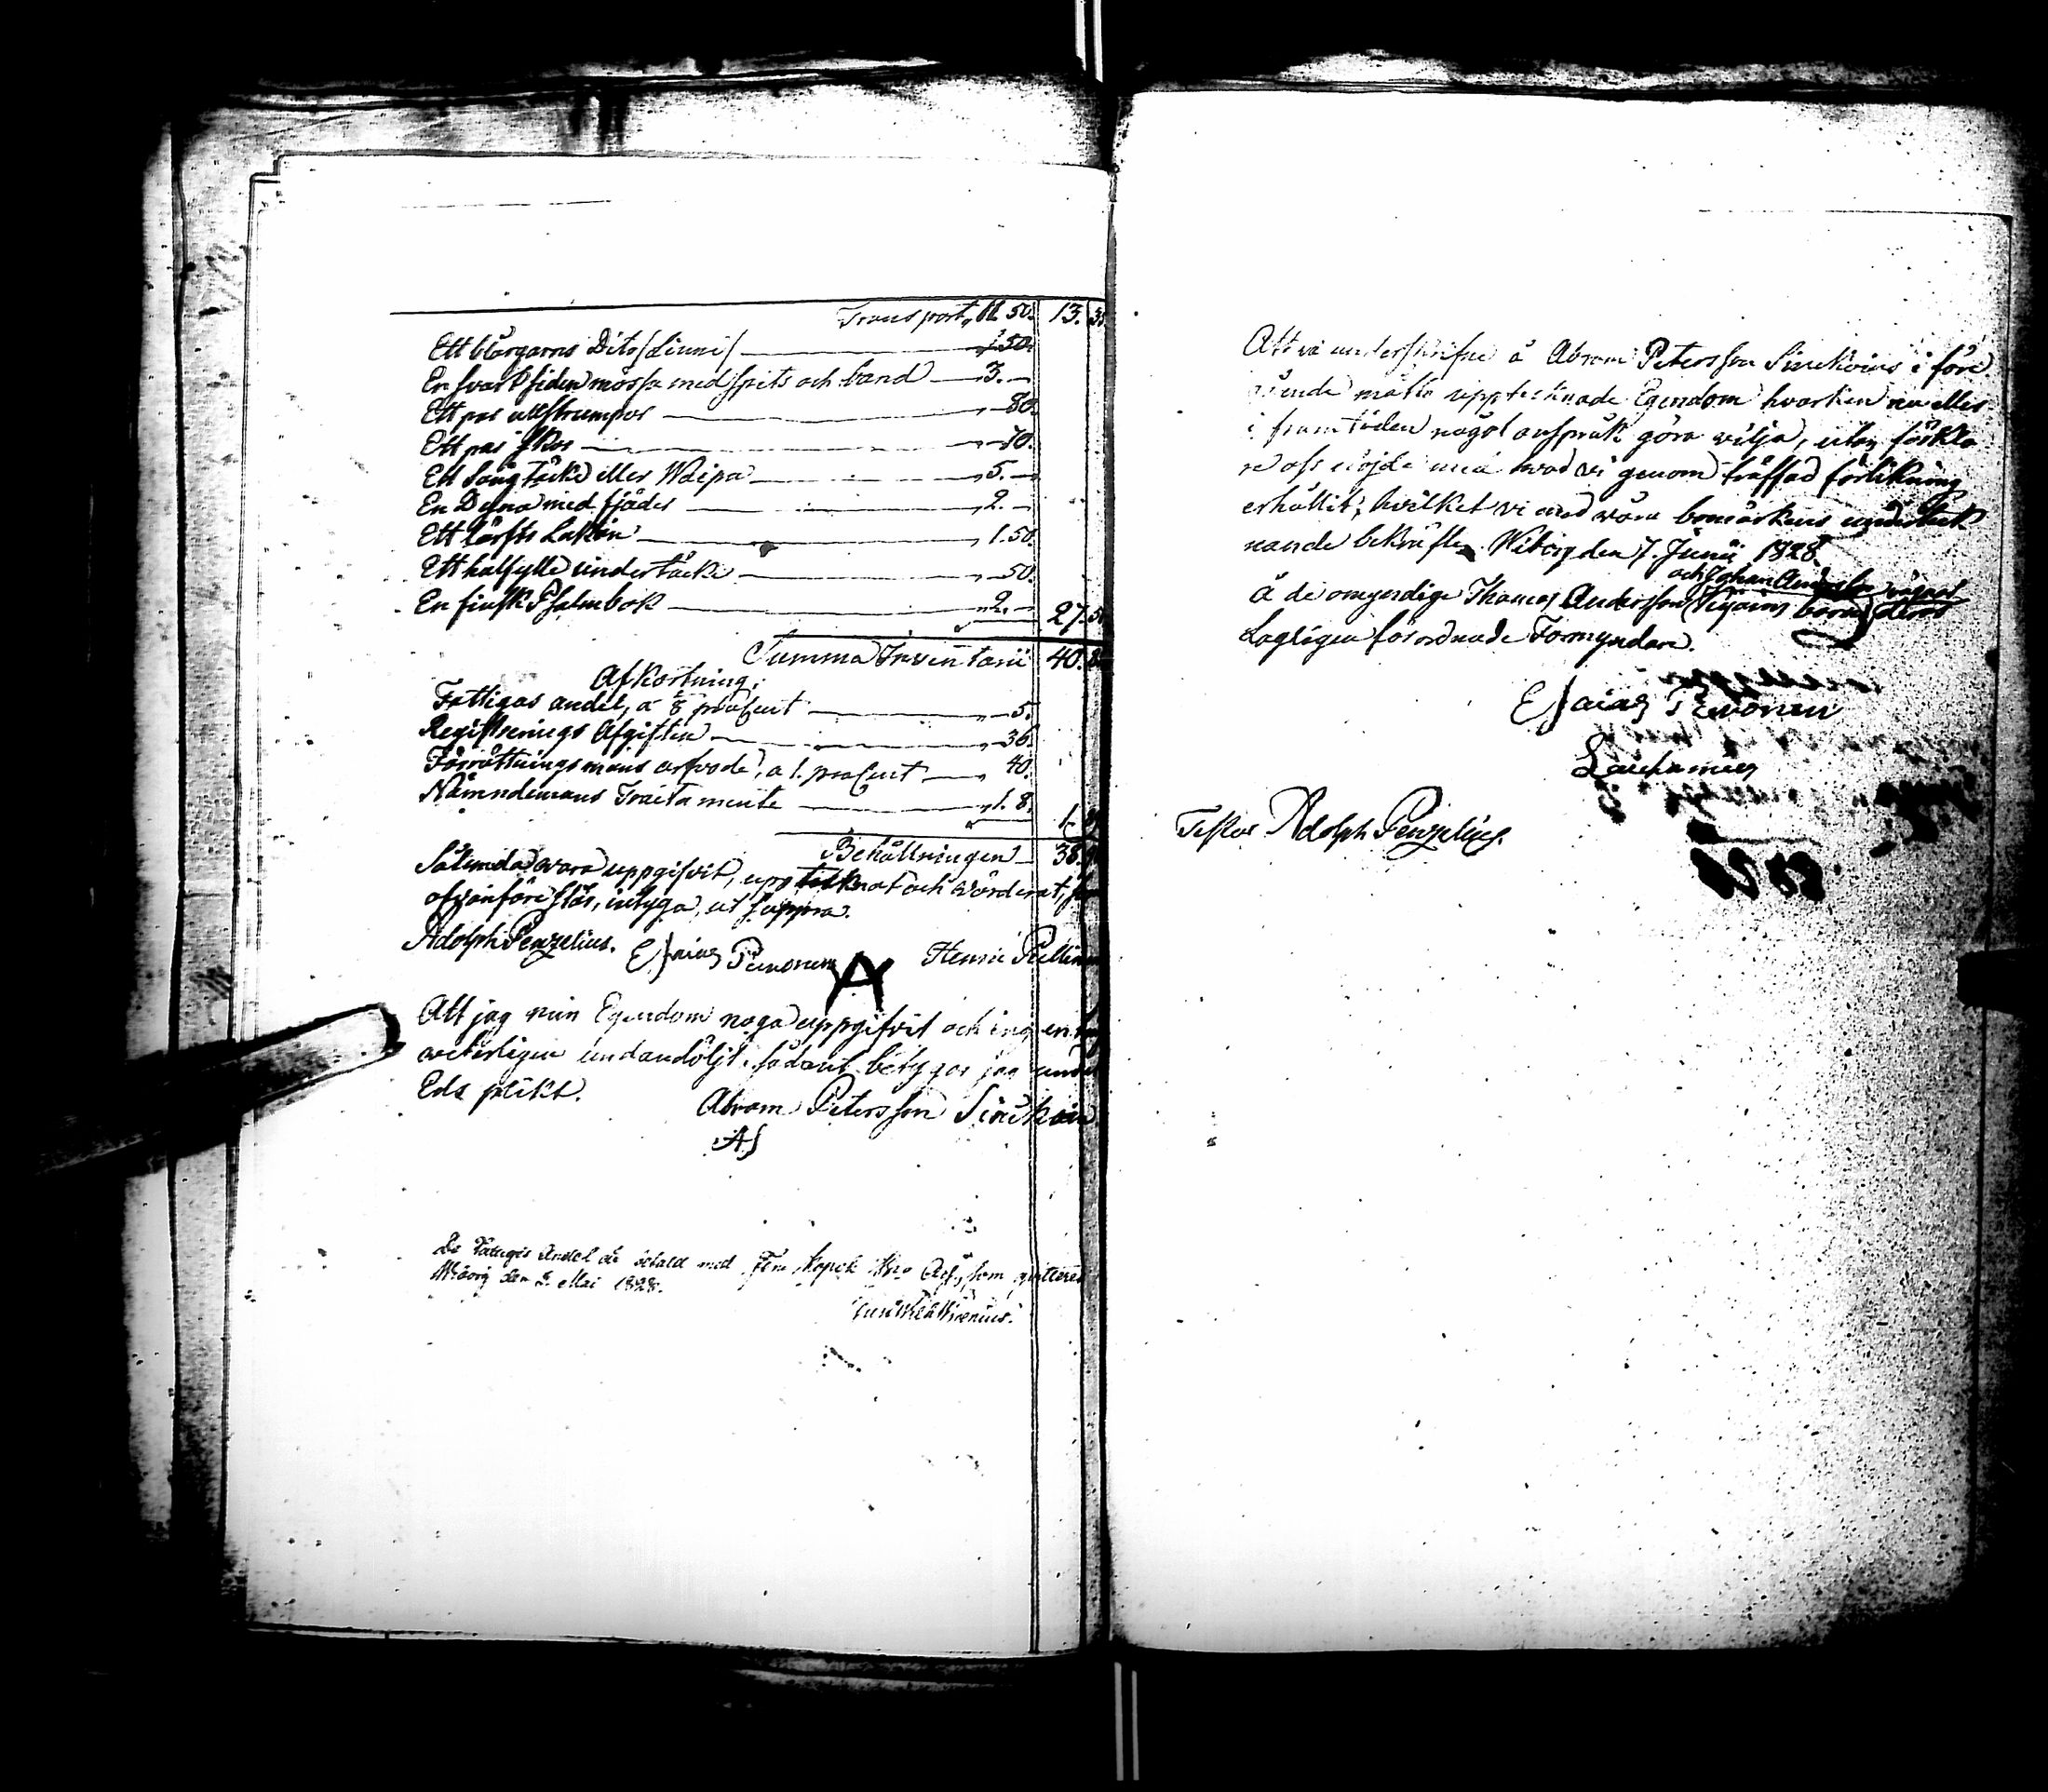 Transport, 11. 50. 13. 3
Ett blårgarns Dito (Linni) 1.50.
En svart siden mössa med spits och band 3.
Ett par ullstrumpor 80.
Ett par skor 70.
Ett Sängtäcke eller Waipa 5.
En Dyna med fjäder 2.
Ett lärfts Lakan 1.50.
Ett halfylle undertäcke 50.
En finsk Psalmbok 2. 27. 5
Summa Inventarii 40. 8
Afkortning.
Fattigas andel, a 1/8 proCent 5.
Registrerings Afgiften 36.
Förrättningsmans arfvode, a 1. proCent 40.
Nämndemans Traktamente 1. 8. 1.
Behållningen 38.
Sålunda vara uppgifvit, upptecknat och värderat, som
ofvanföre står, intyga, ut suppra.
Adolph Penzelius. Esaias Henric
Att jag min Egendom noga uppgifvit och ingenting
veterligen undandöljt, sådant betygar jag under
Eds plikt.
Abram Petersson Sinckoin
AS
De Fattigas Andel är betald med Fem Kopek som quitteras
Wiborg den 2 Mai 1828.
Att vi underskrifne å Abram Petersson Sinckoins i före
gående måtto upptecknade Egendom hvarken nu eller
i framtiden något anspråk göra vilja, utan förkla
re oss nöjde med hvad vi genom träffad förlikning
erhållit; hvilket vi med våra bomärkens underteck
nande bekräfte. Wiborg den 7. Junii 1828.
och Johan
å de omyndige Thomas Andersson barns
Lagligen förordnade Formyndare.
Esaias
Testor Adolph Penzelius.